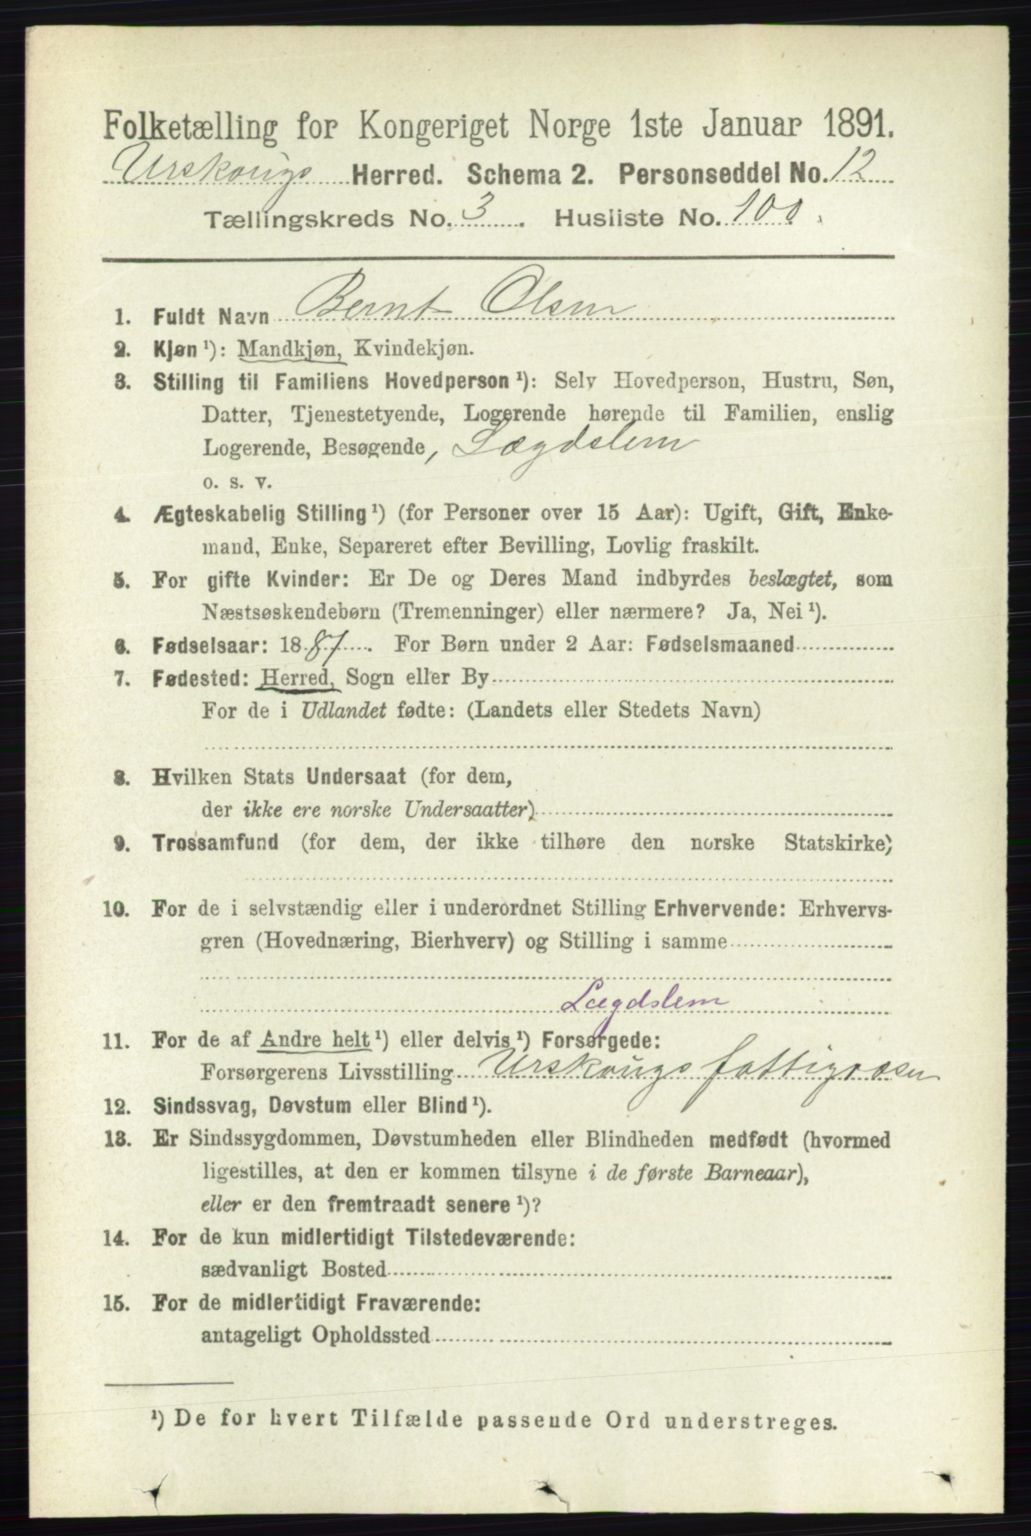 Folketælling for Kongeriget Norge 1ste Januar 1891.
Urskougs Herred. Schema 2. Personseddel No. 12
Tællingskreds No. 3. Husliste No. 100.
1. Fuldt Navn Bernt Olsen
2. Kjøn ¹): Mandkjøn, Kvindekjøn.
3. Stilling til Familiens Hovedperson ¹): Selv Hovedperson, Hustru, Søn,
Datter, Tjenestetyende, Logerende hørende til Familien, enslig
Logerende, Besøgende, Lægdslem
o. s. v.
4. Ægteskabelig Stilling ¹) (for Personer over 15 Aar): Ugift, Gift, Enke-
mand, Enke, Separeret efter Bevilling, Lovlig fraskilt.
5. For gifte Kvinder: Er De og Deres Mand indbyrdes beslægtet, som
Næstsøskendebørn (Tremenninger) eller nærmere? Ja, Nei ¹).
6. Fødselsaar: 1887. For Børn under 2 Aar: Fødselsmaaned
7. Fødested: Herred, Sogn eller By
For de i Udlandet fødte: (Landets eller Stedets Navn)
8. Hvilken Stats Undersaat (for dem,
der ikke ere norske Undersaatter)
9. Trossamfund (for dem, der ikke tilhøre den norske Statskirke)
10. For de i selvstændig eller i underordnet Stilling Erhvervende: Erhvervs-
gren (Hovednæring, Bierhverv) og Stilling i samme
Lægdslem
11. For de af Andre helt ¹) eller delvis ¹) Forsørgede:
Forsørgerens Livsstilling Urskougs fattigvæsen
12. Sindssvag, Døvstum eller Blind ¹).
13. Er Sindssygdommen, Døvstumheden eller Blindheden medfødt (hvormed
ligestilles, at den er kommen tilsyne i de første Barneaar),
eller er den fremtraadt senere ¹)?
14. For de kun midlertidigt Tilstedeværende:
sædvanligt Bosted
15. For de midlertidigt Fraværende:
antageligt Opholdssted
¹) De for hvert Tilfælde passende Ord understreges.